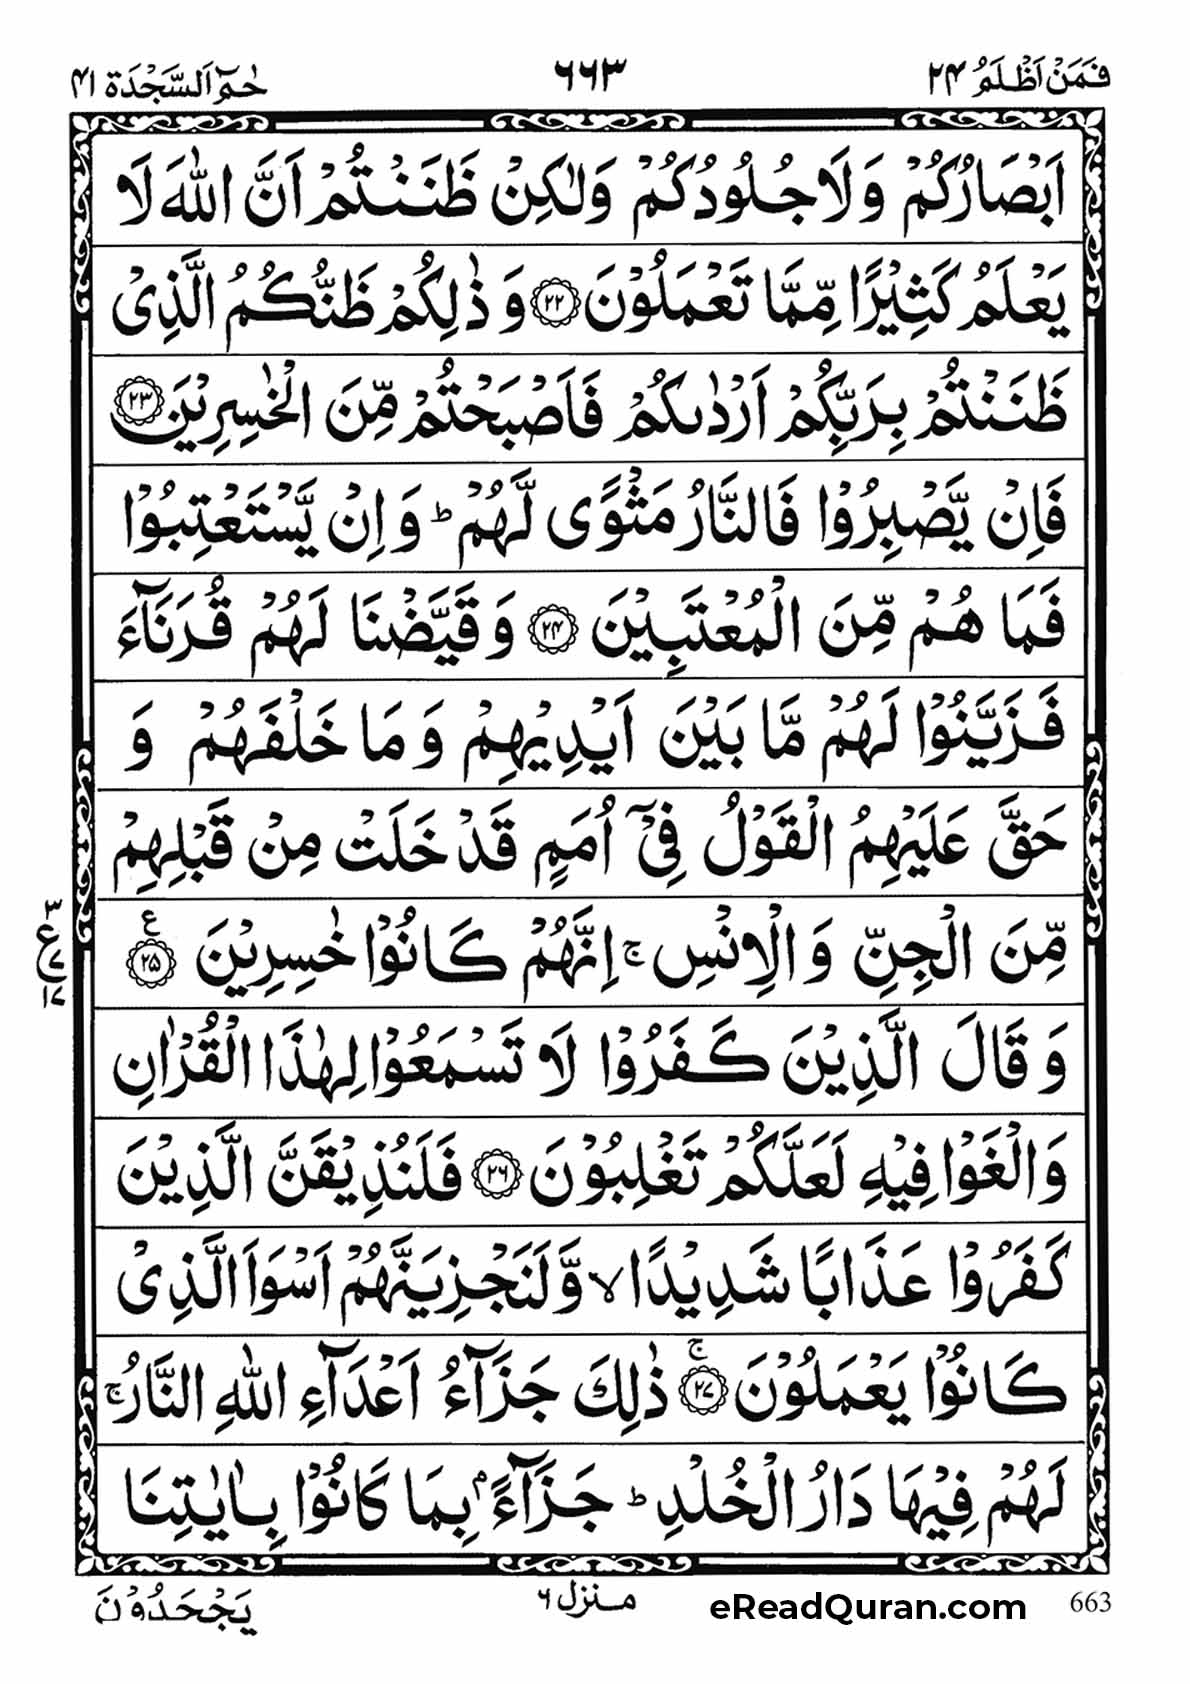 فَمَنْ اَظْلَمُ ۲۴ ۶۶۳ حٰمٓ اَلسَّجْدَة ۴۱
اَبْصَارُكُمْ وَلَا جُلُوْدُكُمْ وَلٰكِنْ ظَنَنْتُمْ اَنَّ اللّٰهَ لَا
يَعْلَمُ كَثِيْرًا مِّمَّا تَعْمَلُوْنَ ۝۲۲ وَ ذٰلِكُمْ ظَنُّكُمُ الَّذِىْ
ظَنَنْتُمْ بِرَبِّكُمْ اَرْدٰٮكُمْ فَاَصْبَحْتُمْ مِّنَ الْخٰسِرِيْنَ ۝۲۳
فَاِنْ يَّصْبِرُوْا فَالنَّارُ مَثْوًى لَّهُمْ ؕ وَ اِنْ يَّسْتَعْتِبُوْا
فَمَا هُمْ مِّنَ الْمُعْتَبِيْنَ ۝۲۴ وَ قَيَّضْنَا لَهُمْ قُرَنَآءَ
فَزَيَّنُوْا لَهُمْ مَّا بَيْنَ اَيْدِيْهِمْ وَ مَا خَلْفَهُمْ وَ
حَقَّ عَلَيْهِمُ الْقَوْلُ فِىْۤ اُمَمٍ قَدْ خَلَتْ مِنْ قَبْلِهِمْ
مِّنَ الْجِنِّ وَ الْاِنْسِ ۚ اِنَّهُمْ كَانُوْا خٰسِرِيْنَ ۝۲۵ ع
۳ ع ۷ ۱۷
وَ قَالَ الَّذِيْنَ كَفَرُوْا لَا تَسْمَعُوْا لِهٰذَا الْقُرْاٰنِ
وَالْغَوْا فِيْهِ لَعَلَّكُمْ تَغْلِبُوْنَ ۝۲۶ فَلَنُذِيْقَنَّ الَّذِيْنَ
كَفَرُوْا عَذَابًا شَدِيْدًا ۙ وَّلَنَجْزِيَنَّهُمْ اَسْوَاَ الَّذِىْ
كَانُوْا يَعْمَلُوْنَ ۝۲۷ ج ذٰلِكَ جَزَآءُ اَعْدَآءِ اللّٰهِ النَّارُ ۚ
لَهُمْ فِيْهَا دَارُ الْخُلْدِ ؕ جَزَآءًۢ بِمَا كَانُوْا بِاٰيٰتِنَا
يَجْحَدُوْنَ منزل ۶ eReadQuran.com 663